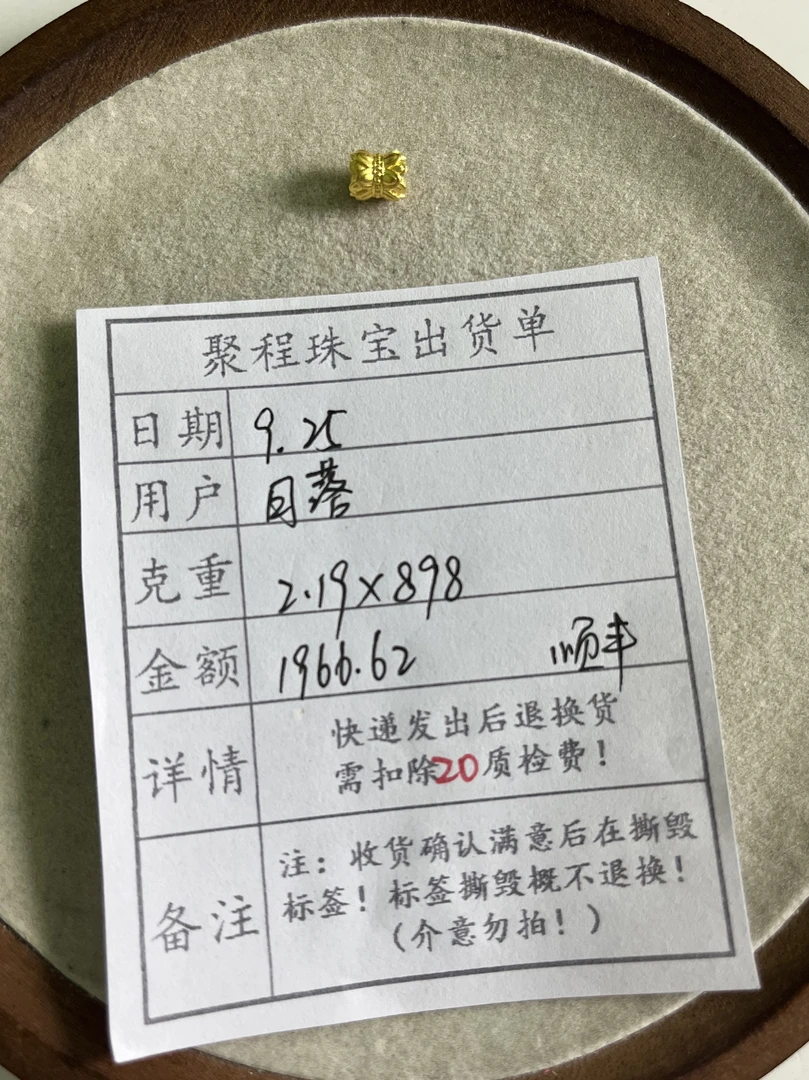 聚程珠宝出货单
日期 9.25
用户 日落
克重 2.19×898
金额 1966.62 顺丰
详情 快递发出后退换货
需扣除20质检费！
备注 注：收货确认满意后在撕毁
标签！标签撕毁概不退换！
（介意勿拍！）